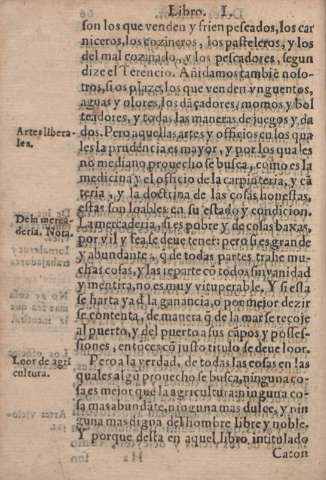 Libro. I.
son los que venden y frien pescados, los car
niceros, los cozineros, los pasteleros, y los
del mal cozinado, y los pescadores, segun
dize el Terencio. Añidamos tambiē noso-
tros, si os plaze, los que venden vnguentos,
aguas y olores, los dāçadores, momos y bol
teadores, y todas las maneras de juegos y da
Artes libera-
les.
dos. Pero aquellas artes y officios en los qua
les la prudēcia es mayor, y por los quales
no mediano prouecho se busca, como es la
medicina y el officio de la carpinteria, y cā
teria, y la doctrina de las cosas honestas,
estas son loables en su estado y condicion.
De la merca-
deria. Nota.
La mercaderia, si es pobre y de cosas baxas,
por vil y fea se deue tener: pero si es grande
y abundante, q̄ de todas partes trahe mu
chas cosas, y las reparte cō todos sin vanidad
y mentira, no es muy vituperable, Y si esta
se harta ya d̄ la ganancia, o por mejor dezir
se contenta, de manera q̄ de la mar se recoje
al puerto, y del puerto a sus capos y posses-
siones, entōces cō justo titulo se deue loor.
Loor de agri
cultura.
Pero a la verdad, de todas las cosas en las
quales algū prouecho se busca, ninguna co-
sa es mejor que la agricultura: ninguna co-
sa mas abundāte, ninguna mas dulce, y nin
guna mas digna del hombre libre y noble.
Y porque desta en aquel libro, intitulado
Caton